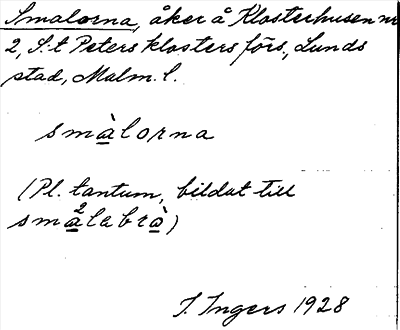 Smalorna, åker å Klosterhusen nr
2, S:t Peters klosters förs., Lunds
stad, Malm. l.
smàlorna
(Pl. tantum, bildat till
sma²labrà)
I. Ingers 1928